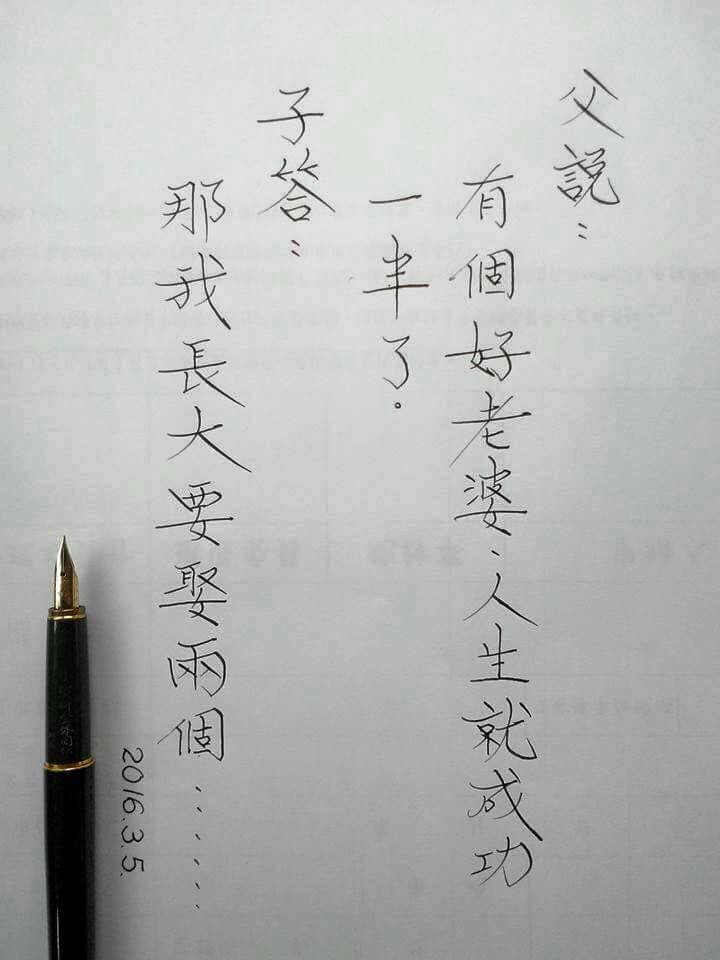 父說：
有個好老婆、人生就成功
一半了。
子答：
那我長大要娶兩個……
2016.3.5.